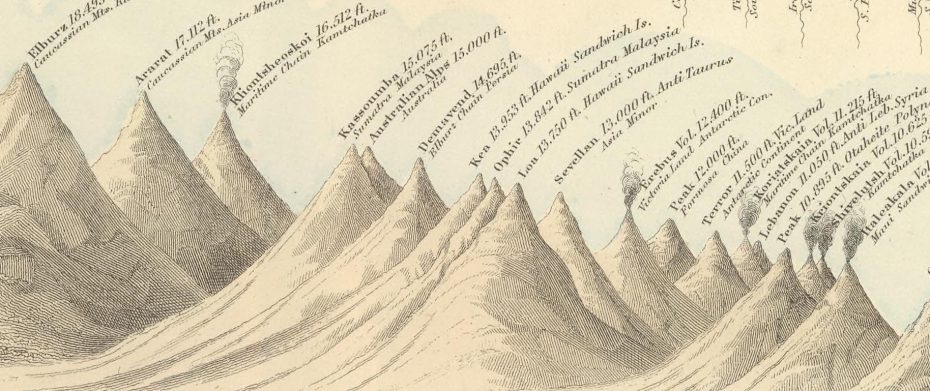 Elburz 18.493
Caucassian Mts.
Ararat 17.112 ft.
Caucassian Mts. Asia Minor
Klientsheoskoi 16.512 ft.
Maritime Chain Kamtchatka
Kassoumba 15.075 ft.
Sumatra Malaysia
Australian Alps 15.000 ft.
Australia
Demavend 14.695 ft.
Elburz Chain Persia
Kea 13.953 ft. Hawaii Sandwich Is.
Ophir 13.842 ft. Sumatra Malaysia
Loa 13.750 ft. Hawaii Sandwich Is.
Sevellan 13.000 ft. Anti Taurus
Asia Minor
Erebus Vol. 12.400 ft.
Victoria Land Antarctic Con.
Peak 12.000 ft.
Formosa China
Terror 11.500 ft. Vic. Land
Antarctic Continent
Koriatskaia Vol. 11.215 ft.
Maritime Chain Kamtchatka
Lebanon 11.050 ft. Anti Leb. Syria
Peak 10.895 ft. Otaheite
Kriontskaia Vol. 10.625
Kamtchatka
Haleakala Vol.
Maui